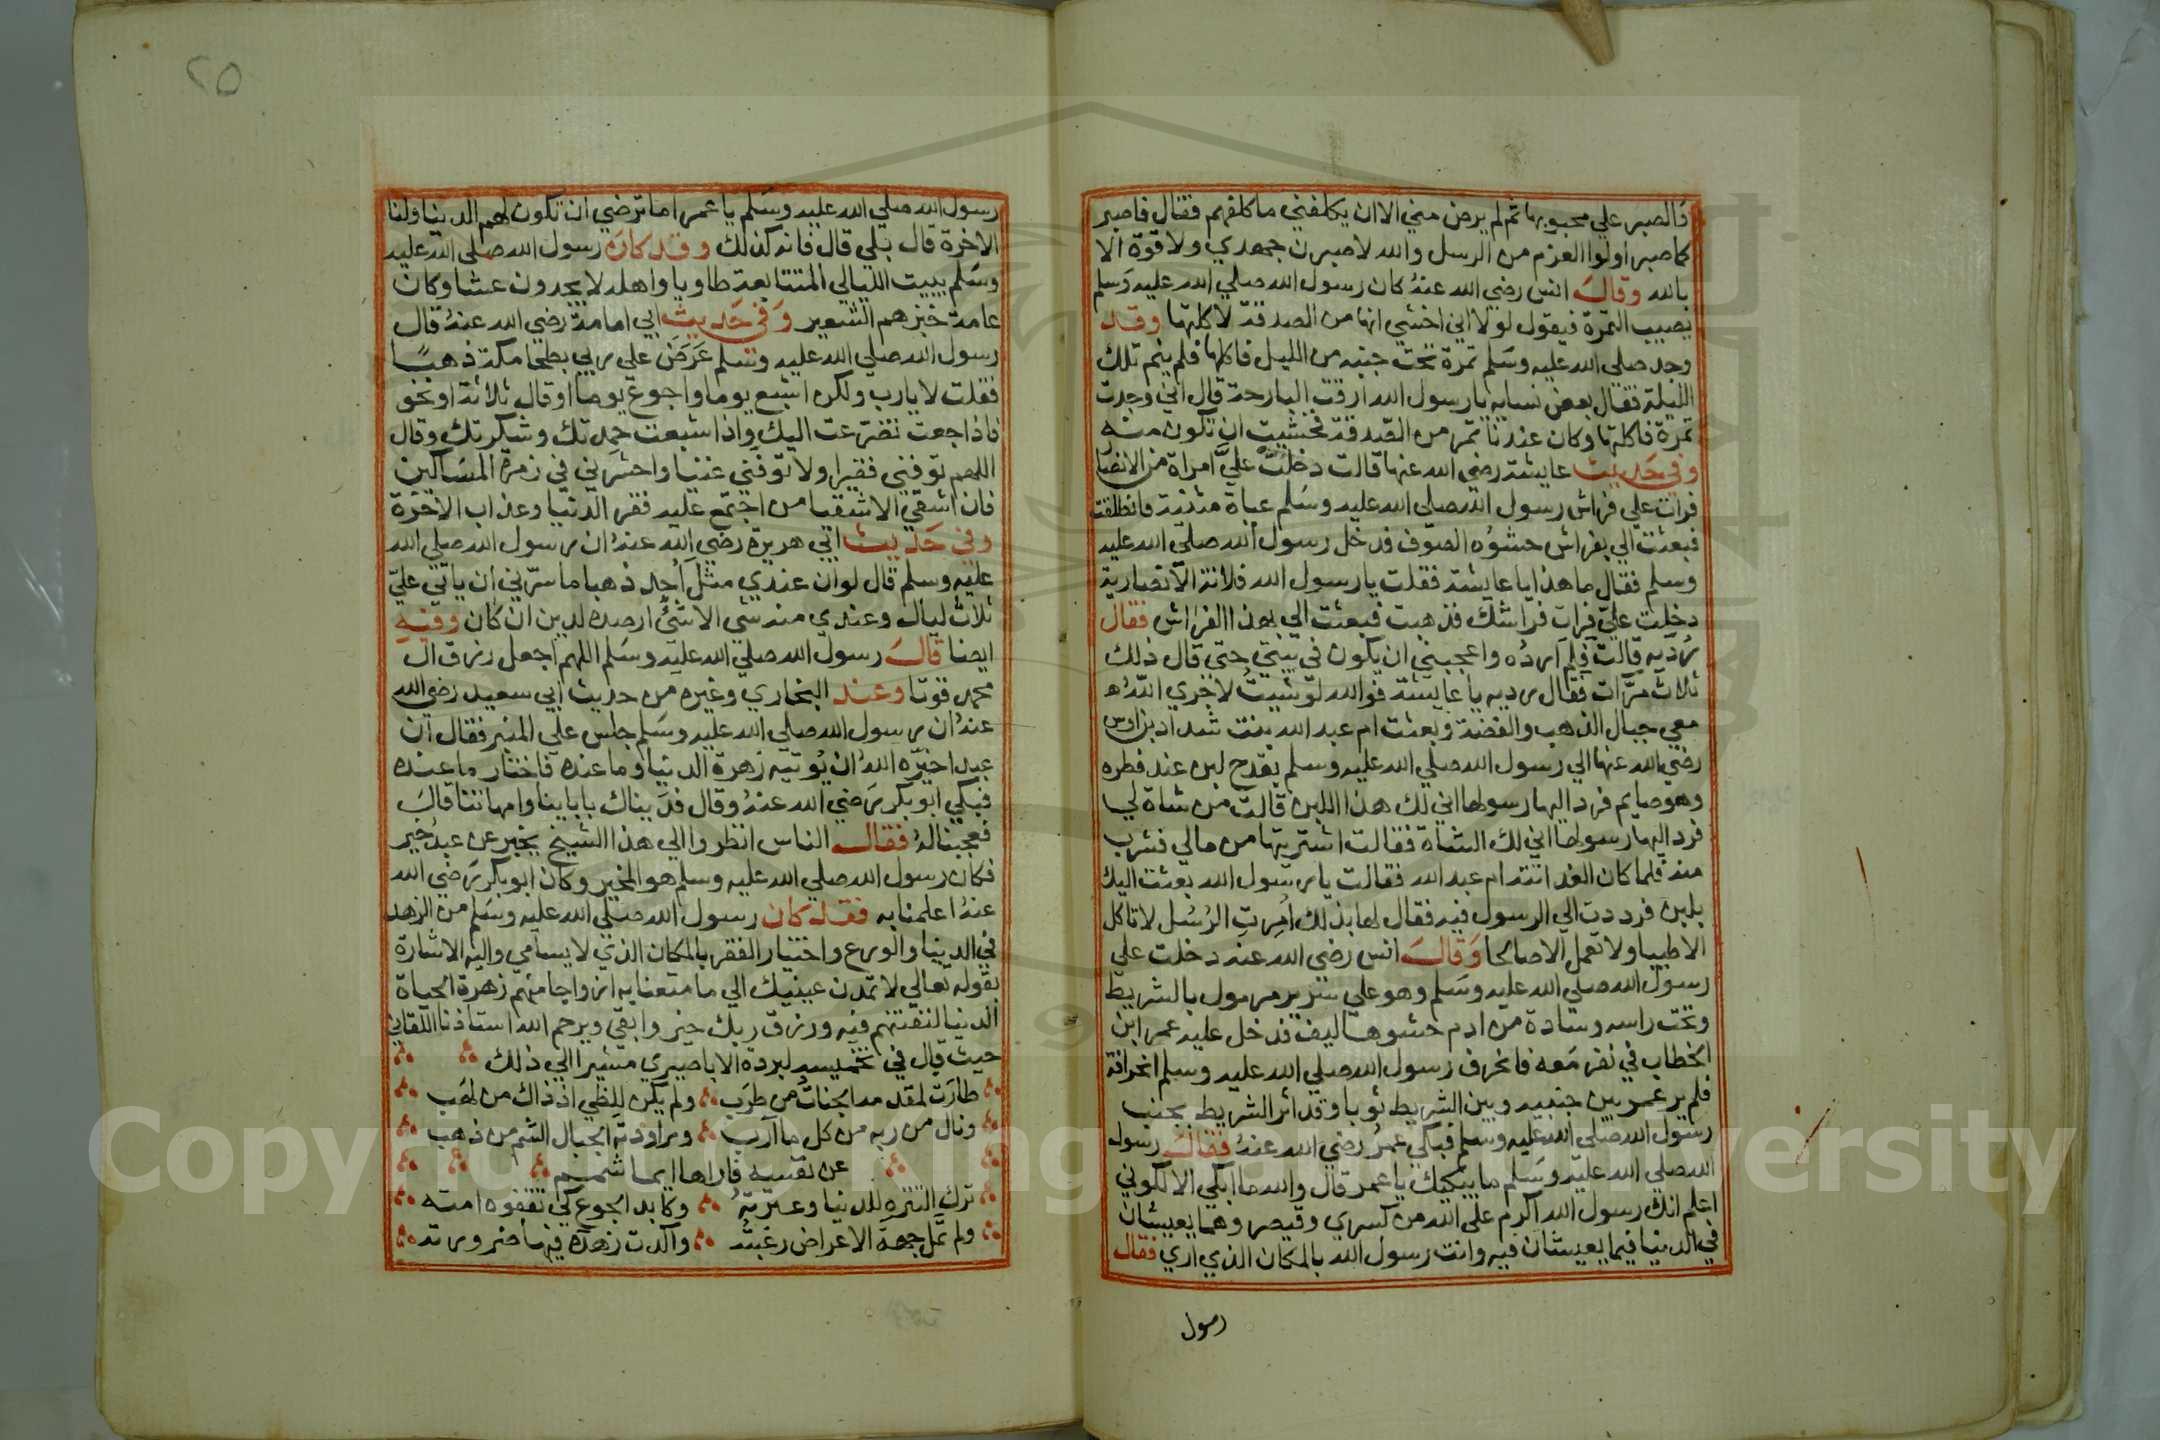 والصبر علي محبوبها ثم لم يرض مني الا ان يكلفني ما كلفهم فقال فاصبر
كما صبر اولوا العزم من الرسل والله لاصبرن جهدي ولا قوة الا
بالله وقال انس رضي الله عنه كان رسول الله صلي الله عليه وسلم
يصيب التمرة فيقول لولا اني اخشي انها من الصدقة لاكلتها وقد
وجد صلي الله عليه وسلم تمرة تحت جنبه من الليل فاكلها فلم ينم تلك
الليلة فقال بعض نسايه يا رسول الله ارقت البارحة قال اني وجدت
تمرة فاكلتها وكان عندنا تمر من الصدقة فخشيت ان تكون منه
وفي حديث عايشة رضي الله عنها قالت دخلت عليَّ امراة من الانصار
فرات علي فراش رسول الله صلي الله عليه وسلم عباة مثنية فانطلقت
فبعثت الي بفراش حشوه الصوف فدخل رسول الله صلي الله عليه
وسلم فقال ما هذا يا عايشة فقلت يا رسول الله فلانة الانصارية
دخلت عليّ فرات فراشك فذهبت فبعثت الي بهذا الفراش فقال
رديه قالت فلم ارده واعجبني ان يكون في بيتي حتي قال ذلك
ثلاث مرات فقال رديه يا عايشة فوالله لو شيت لاجري الله
معي جبال الذهب والفضة وبعثت ام عبد الله بنت شداد بن اوس
رضي الله عنها الي رسول الله صلي الله عليه وسلم بقدح لبن عند فطره
وهو صايم فرد اليها رسولها اني لك هذا اللبن قالت من شاة لي
فرد اليها رسولها اني لك الشاة فقالت اشتريتها من مالي فشرب
منه فلما كان الغد اتته ام عبد الله فقالت يا رسول الله بعثت اليك
بلبن فرددت الي الرسول فيه فقال لها بذلك اُمِرتِ الرُسُل لا تاكل
الا طيبا ولا تعمل الا صالحا وَقالَ انس رضي الله عنه دخلت علي
رسول الله صلي الله عليه وسلم وهو علي سرير مرمول بالشريط
وتحت راسه وسادة من ادم حشوها ليف فدخل عليه عمر ابن
الخطاب في نفر معه فانحرف رسول الله صلي الله عليه وسلم انحرافة
فلم ير عمر بين جنبيه وبين الشريط ثوبا وقد اثر الشريط بجنب
رسول الله صلي الله عليه وسلم فبكي عمرُ رضي الله عنه فقال رسول
الله صلي الله عليه وسلم ما يبكيك يا عمر قال والله ما ابكي الا لكوني
اعلم انك رسول الله اكرم علي الله من كسري وقيصر وهما يعيشان
في الدنيا فيما يعيشان فيه وانت رسول الله بالمكان الذي اري فقال
رسول
٢٥
رسول الله صلي الله عليه وسلم يا عمر اما ترضي ان تكون لهم الدنيا ولنا
الاخرة قال بلي قال فانه كذلك وقد كان رسول الله صلي الله عليه
وسلم يبيت الليالي المتتابعة طاويا واهله لا يجدون عشا وكان
عامة خبزهم الشعير وَفي حَديث ابي امامة رضي الله عنه قال
رسول الله صلي الله عليه وسلم عَرَضَ علي ربي بطحا مكة ذهبًا
فقلت لا يا رب ولكن اشبع يوما واجوع يوما او قال ثلاثة او نحو
فاذا جعت تضرعت اليك واذا شبعت حمدتك وشكرتك وقال
اللهم توفني فقيرا ولا توفني غنيا واحشرني في زمرة المساكين
فان اشقي الاشقيا من اجتمع عليه فقر الدنيا وعذاب الاخرة
وفي حَديث ابي هريرة رضي الله عنه ان رسول الله صلي الله
عليه وسلم قال لو ان عندي مثل اُحد ذهبا ما سرّني ان ياتي عليّ
ثلاث ليال وعندي منه شي الا شئ ارصده لدين ان كان وفيه
ايضا قال رسول الله صلي الله عليه وسلم اللهم اجعل رزق ال
محمد قوتا وعند البخاري وغيره من حديث ابي سعيد رضي الله
عنه ان رسول الله صلي الله عليه وسلم جلس علي المنبر فقال ان
عبدا خيّره الله ان يُوتيه زهرة الدنيا وما عنده فاختار ما عنده
فبكي ابو بكر رضي الله عنه وقال فديناك بابايناوامهاتنا قال
فعجبنا له فقال الناس انظروا الي هذا الشيخ يخبر عن عبد خير
فكان رسول الله صلي الله عليه وسلم هو المخير وكان ابو بكر رضي الله
عنه اعلمنا به فقد كان رسول الله صلي الله عليه وسلم من الزهد
في الدنيا والورع واختيار الفقر بالمكان الذي لا يسامي واليه الاشارة
بقوله تعالي لا تمدن عينيك الي ما متعنا به ازواجا منهم زهرة الحياة
الدنيا لنفتنهم فيه ورزق ربك خير وابقي ويرحم الله استاذنا اللقاني
حيث قال في تخميسه لبردة الاباصيري مشيرا الي ذلك
طارت لمقدمه الجنات من طرب ولم يكن للظي اذ ذاك من لهب
ونال من ربه من كل ما آرب وراودته الجبال الشم من ذهب
عن نفسه فاراها ايما شمم
ترك التنزه للدنيا وعتزته وكابد الجوع كي تقفوه امته
ولم تمل جهة الاعراض رغبته واكدت زهده فيها ضرورته